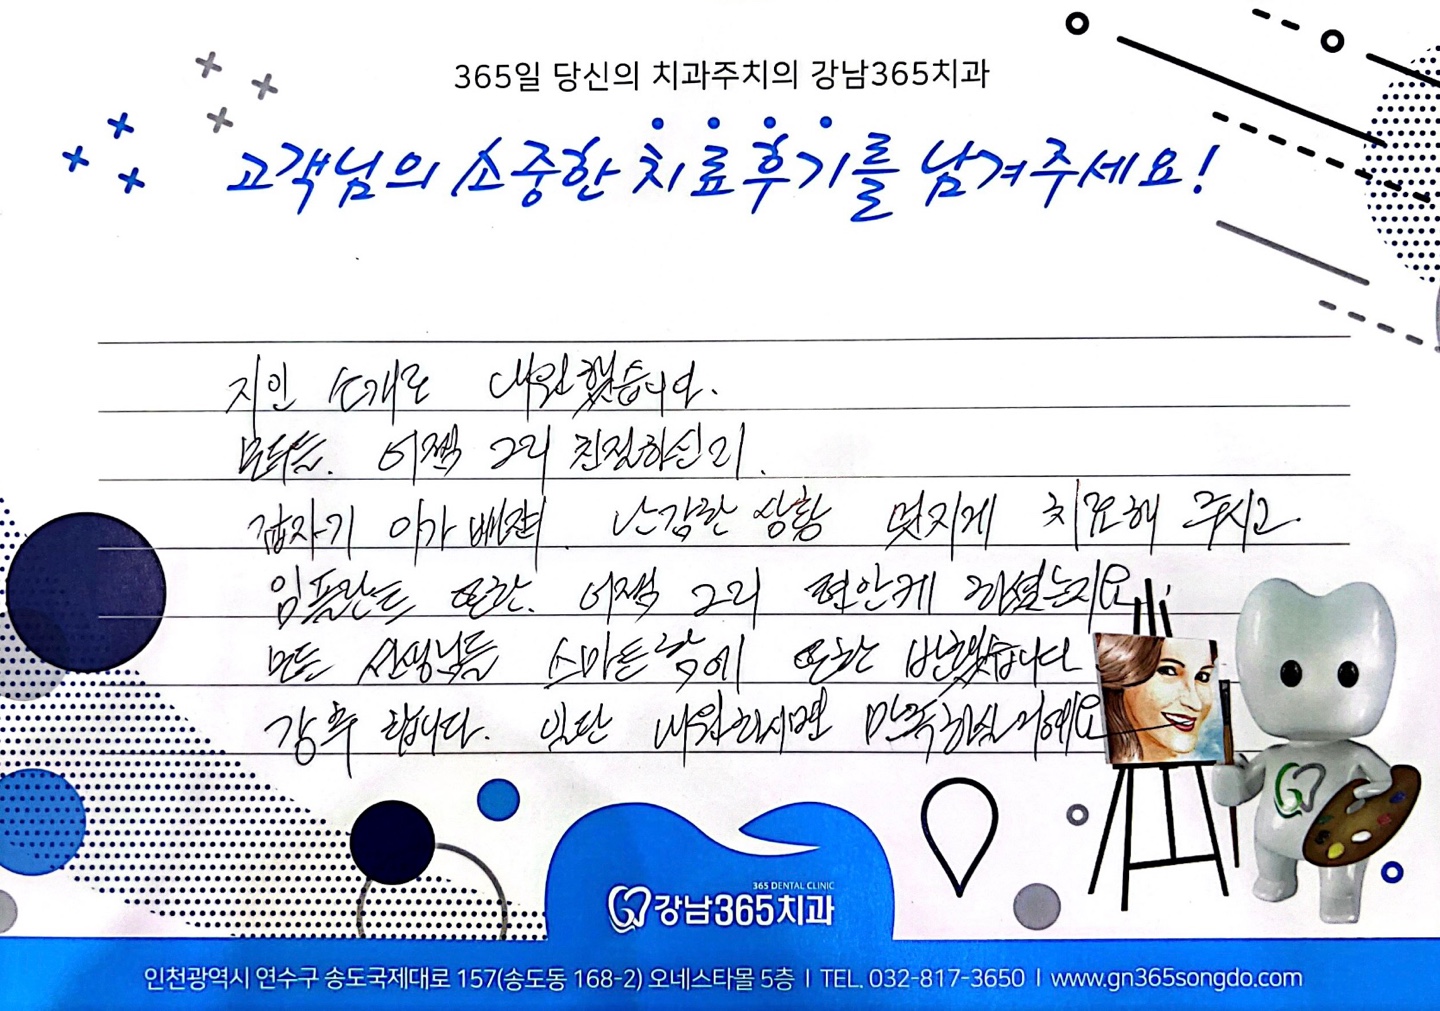 365일 당신의 치과주치의 강남365치과
고객님의 소중한 치료후기를 남겨주세요!
지인 소개로 내원했습니다.
모두들. 어쩜 그리 친절하신지.
갑자기 이가 빠져 난감한 상황 멋지게 치료해 주시고.
임플란트 또한. 어쩜 그리 편안케 하셨는지요.
모든 선생님들 스마트함에 또한 반했습니다
강추 합니다. 일단 내원하시면 만족하실거예요
365 DENTAL CLINIC
강남365치과
인천광역시 연수구 송도국제대로 157(송도동 168-2) 오네스타몰 5층 | TEL. 032-817-3650 | www.gn365songdo.com